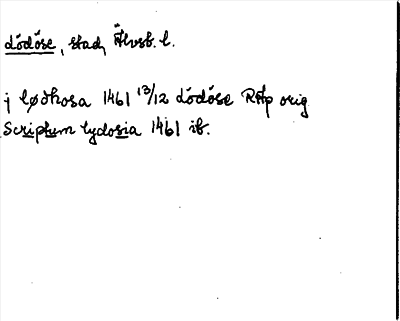 Lödöse, stad, Älvsb. l.
j løđhosa 1461 13/12 Lödöse RAp orig
Scriptum lydosia 1461 ib.